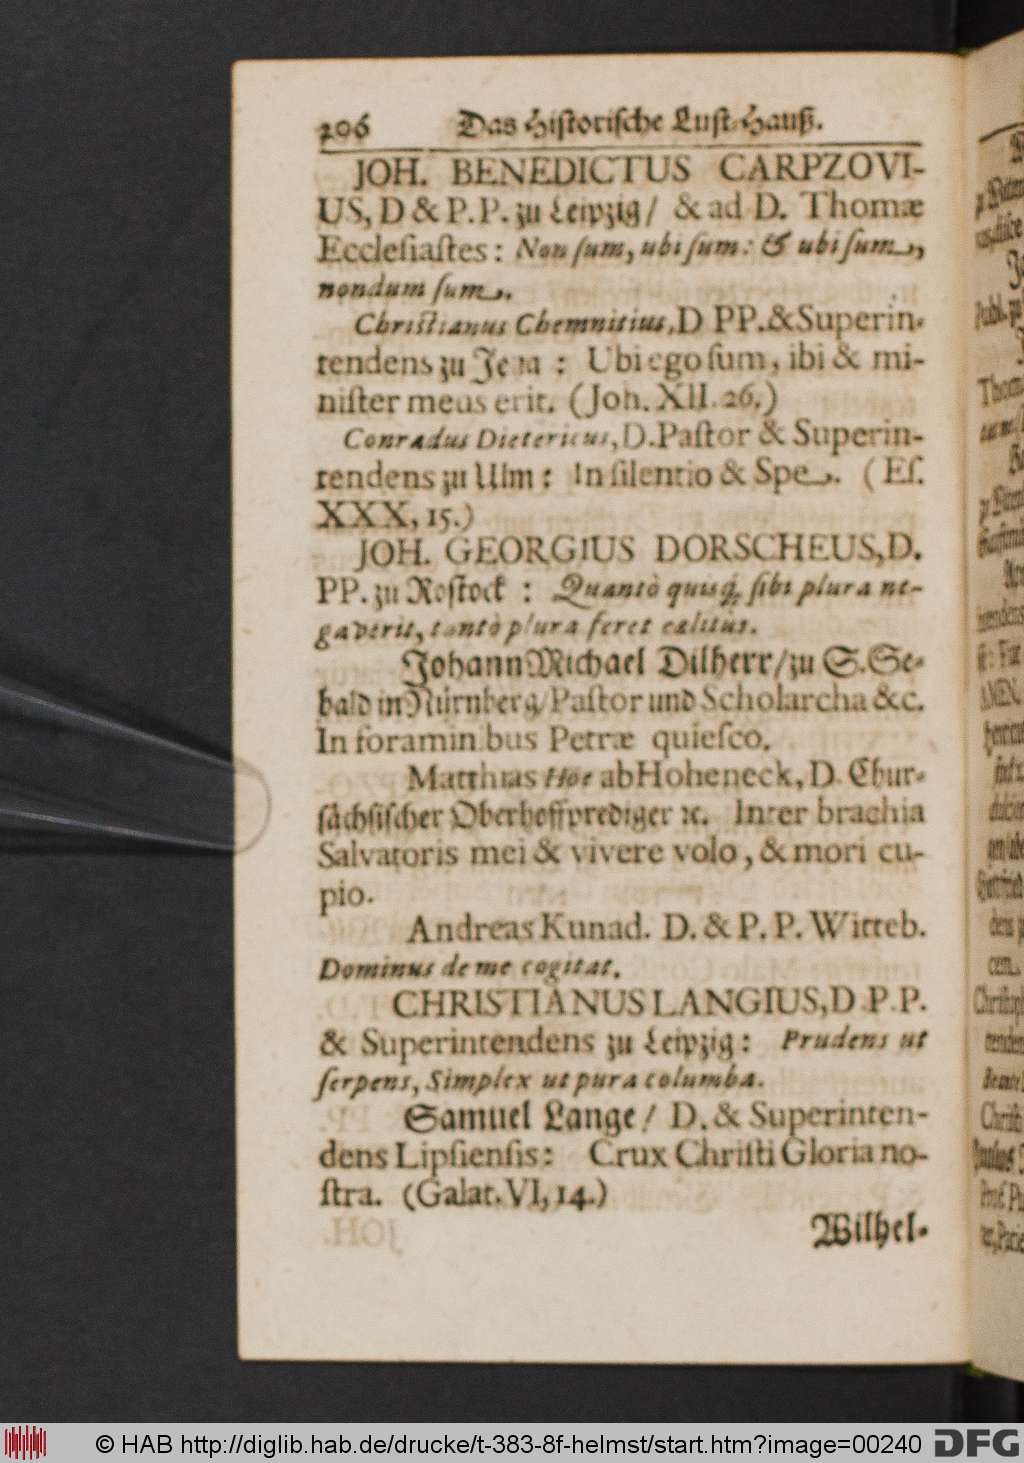 206 Das Historische Lust-Hauß.
JOH. BENEDICTUS CARPZOVI-
US, D & P. P. zu Leipzig / & ad D. Thomæ
Ecclesiastes: Non sum, ubi sum: & ubi sum,
nondum sum.
Christianus Chemnitius, D PP. & Superin-
tendens zu Jena : Ubi ego sum, ibi & mi-
nister meus erit. (Joh. XII. 26.)
Conradus Dietericus, D. Pastor & Superin-
tendens zu Ulm: In silentio & Spe. (Es.
XXX, 15.)
JOH. GEORGIUS DORSCHEUS, D.
PP. zu Rostock : Quantò quisq; sibi plura ne-
gaverit, tantò plura feret cælitùs.
Johann Michael Dilherr / zu S. Se-
bald in Nürnberg / Pastor und Scholarcha &c.
In foraminibus Petræ quiesco.
Matthias Höe ab Hoheneck, D. Chur-
sächsischer Oberhoffprediger ꝛc. Inter brachia
Salvatoris mei & vivere volo, & mori cu-
pio.
Andreas Kunad. D. & P. P. Witteb.
Dominus de me cogitat.
CHRISTIANUS LANGIUS, D. P. P.
& Superintendens zu Leipzig: Prudens ut
serpens, Simplex ut pura columba.
Samuel Lange / D. & Superinten-
dens Lipsiensis: Crux Christi Gloria no-
stra. (Galat. VI, 14.)
Wilhel-
© HAB http://diglib.hab.de/drucke/t-383-8f-helmst/start.htm?image=00240 DFG